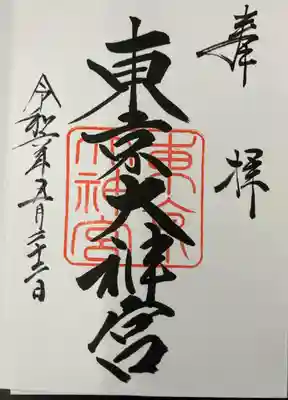 奉拝
東京大神宮
東京
大神宮
令和元年五月二十二日